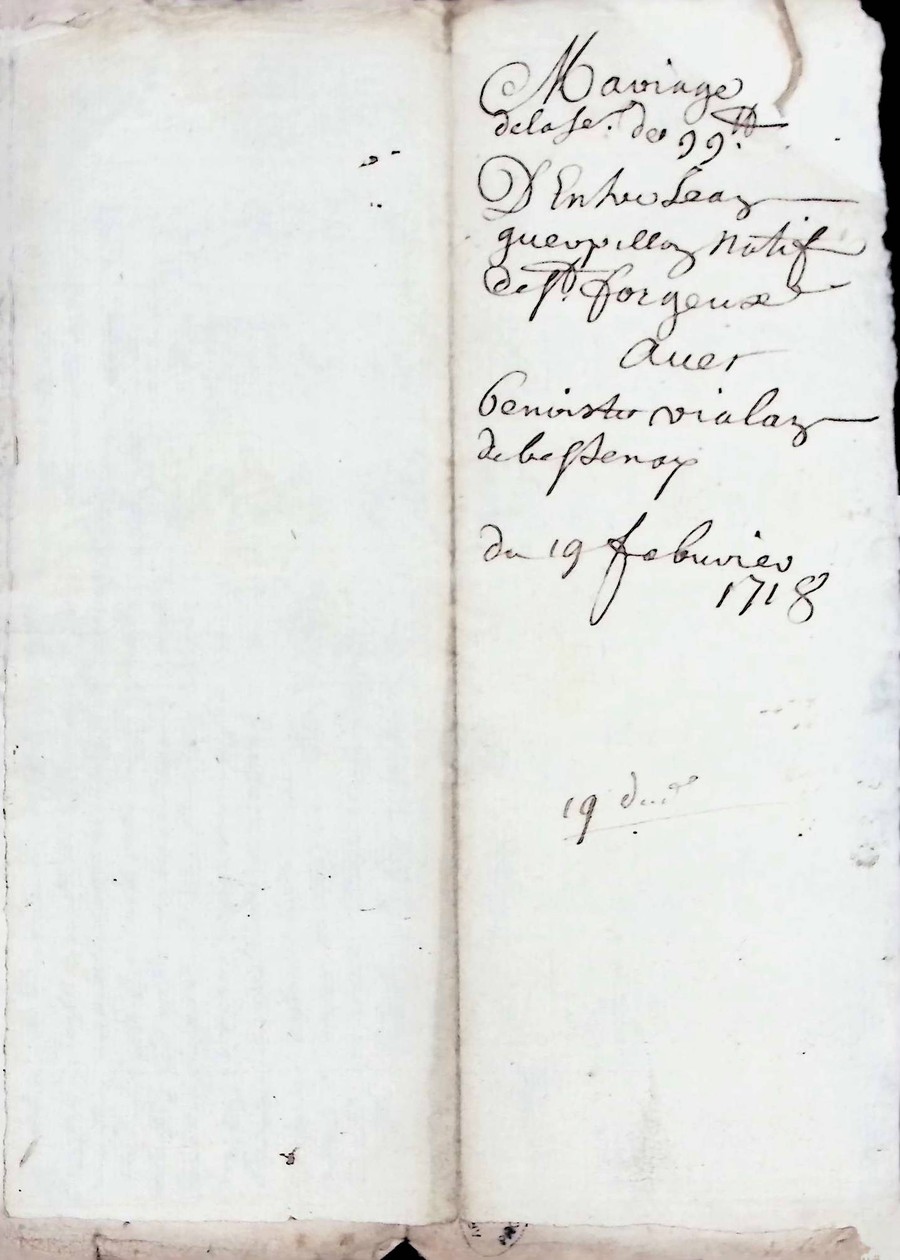 Mariage
de la se. de 99 lt
D'Entre Jean
guerpillon natif
de st forgeux
auec
benoiste vialon
de bessenay
du 19 febvrier
1718
19